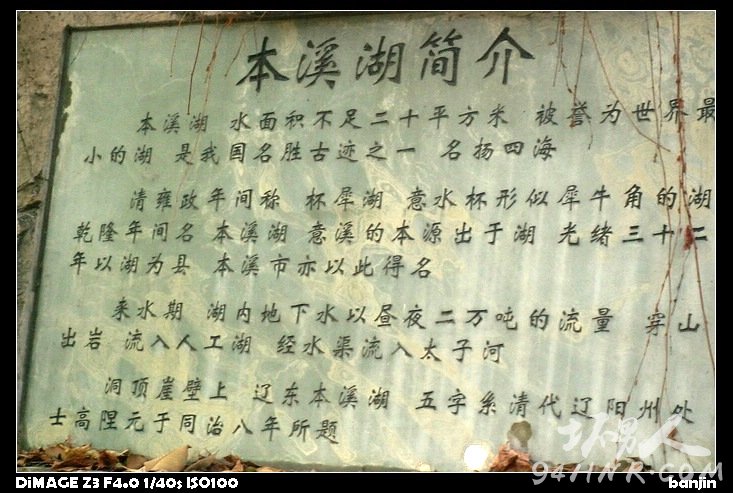 本溪湖简介
本溪湖 水面积不足二十平方米 被誉为世界最
小的湖 是我国名胜古迹之一 名扬四海
清雍政年间称 杯犀湖 意水杯形似犀牛角的湖
乾隆年间名 本溪湖 意溪的本源出于湖 光绪三十二
年以湖为县 本溪市亦以此得名
来水期 湖内地下水以昼夜二万吨的流量 穿山
出岩 流入人工湖 经水渠流入太子河
洞顶崖壁上 辽东本溪湖 五字系清代辽阳州处
士高陧元于同治八年所题
坏男人
94HNR.COM
DiMAGE Z3 F4.0 1/40s ISO100
banjin